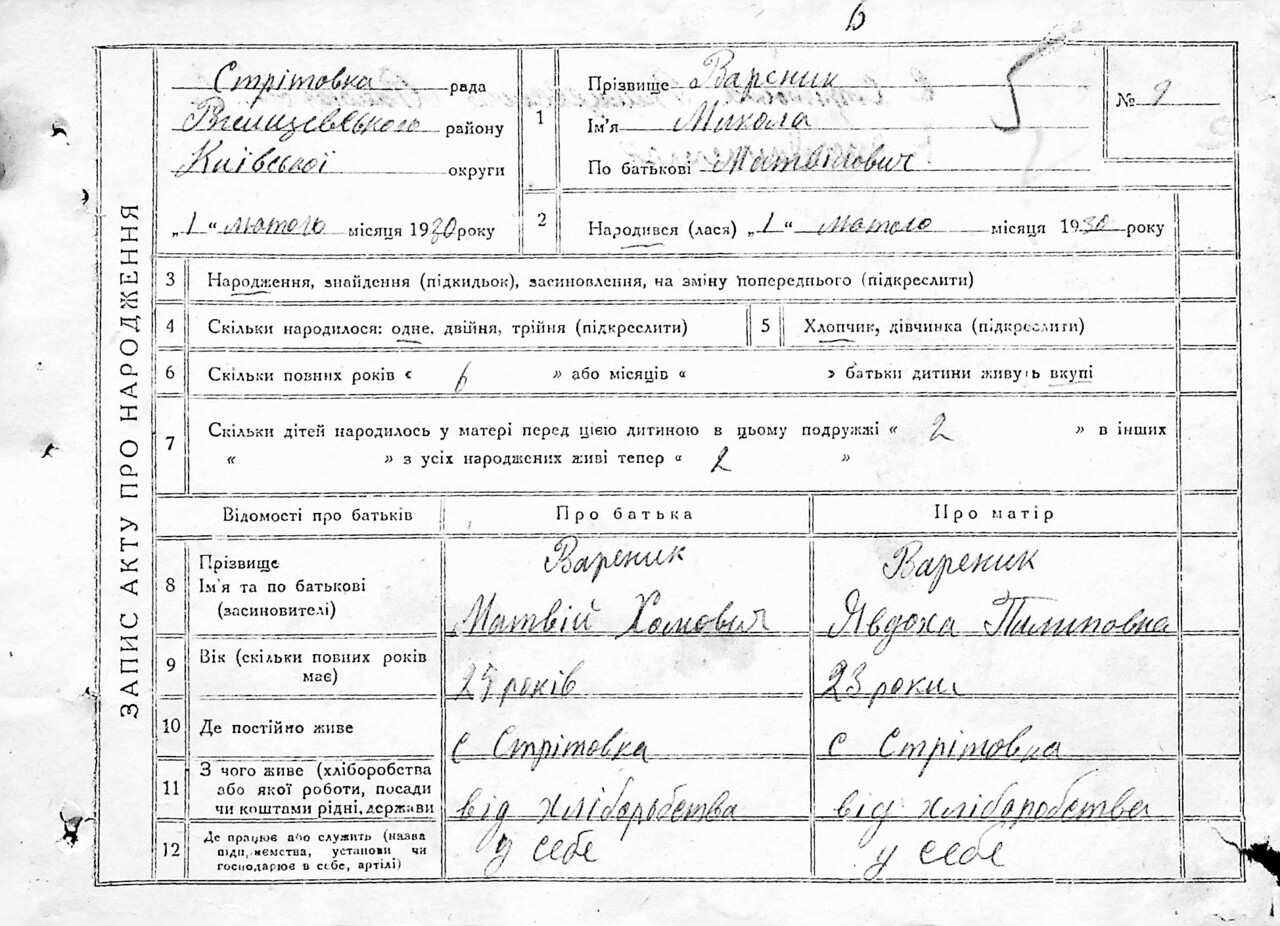 6
ЗАПИС АКТУ ПРО НАРОДЖЕННЯ
Стрітовка рада
району
Київської округи
„1“ лютого місяця 1930 року
1
Прізвище Вареник
Ім'я Микола
По батькові Матвійович
№ 9
2
Народився (лася) „1“ лютого місяця 1930 року
3 Народження, знайдення (підкидьок), засиновлення, на зміну попереднього (підкреслити)
4 Скільки народилося: одне, двійня, трійня (підкреслити)
5 Хлопчик, дівчинка (підкреслити)
6 Скільки повних років « 6 » або місяців « » батьки дитини живуть вкупі
7 Скільки дітей народилось у матері перед цією дитиною в цьому подружжі « 2 » в інших
« » з усіх народжених живі тепер « 2 »
Відомості про батьків Про батька Про матір
8 Прізвище
Ім'я та по батькові
(засиновителі)
Вареник
Матвій Хомович
Вареник
Явдоха Пилиповна
9 Вік (скільки повних років
має)
25 років
23 роки
10 Де постійно живе
с Стрітовка
с Стрітовка
11 З чого живе (хліборобства
або якої роботи, посади
чи коштами рідні, держави
від хліборобства
від хліборобства
12 Де працює або служить (назва
підприємства, установи чи
господарює в себе, артілі)
у себе
у себе